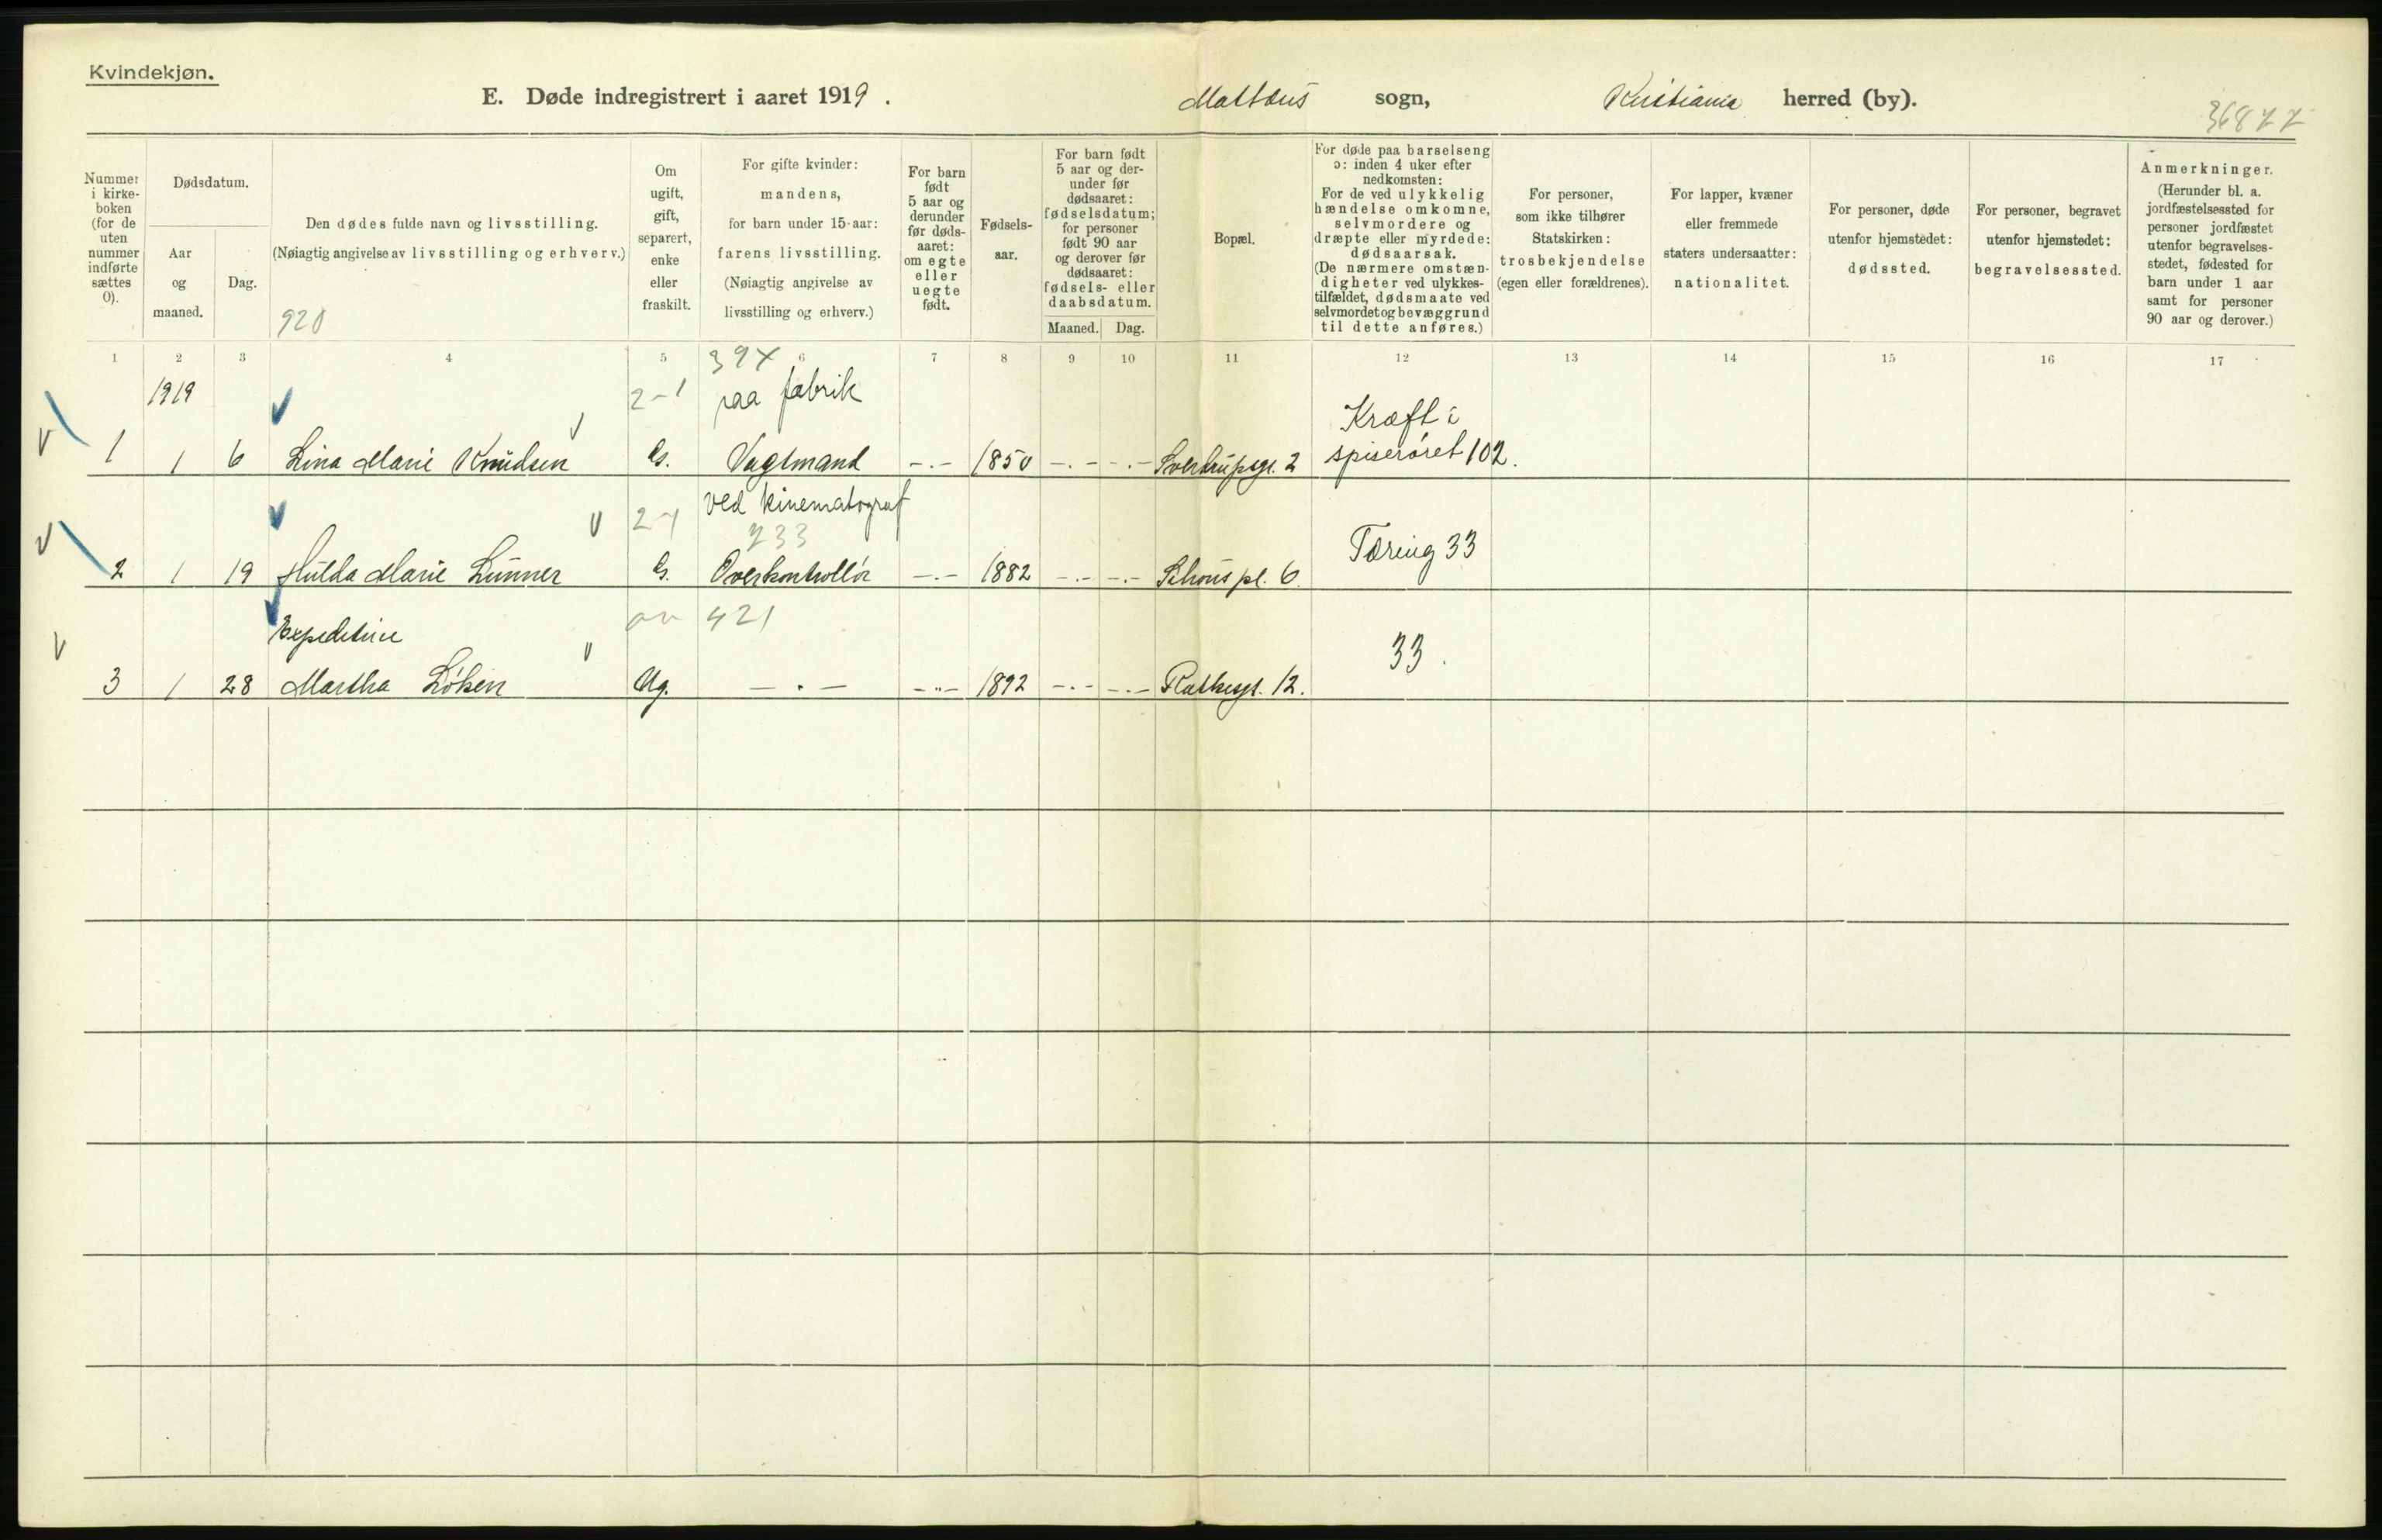 Kvindekjøn.
E. Døde indregistrert i aaret 1919. Mattæus sogn, Kristiania herred (by).
Nummer
i kirke-
boken
(for de
uten
nummer
indførte
sættes
0).
Dødsdatum.
Aar
og
maaned.
Dag.
Den dødes fulde navn og livsstilling.
(Nøiagtig angivelse av livsstilling og erhverv.)
920
Om
ugift,
gift,
separert,
enke
eller
fraskilt.
For gifte kvinder:
mandens,
for barn under 15 aar:
farens livsstilling.
(Nøiagtig angivelse av
livsstilling og erhverv.)
For barn
født
5 aar og
derunder
før døds-
aaret:
om egte
eller
uegte
født.
Fødsels-
aar.
For barn født
5 aar og der-
under før
dødsaaret:
fødselsdatum;
for personer
født 90 aar
og derover før
dødsaaret:
fødsels- eller
daabsdatum.
Maaned. Dag.
Bopæl.
For døde paa barselseng
ɔ: inden 4 uker efter
nedkomsten:
For de ved ulykkelig
hændelse omkomne,
selvmordere og
dræpte eller myrdede:
dødsaarsak.
(De nærmere omstæn-
digheter ved ulykkes-
tilfældet, dødsmaate ved
selvmordet og bevæggrund
til dette anføres.)
For personer,
som ikke tilhører
Statskirken:
trosbekjendelse
(egen eller forældrenes).
For lapper, kvæner
eller fremmede
staters undersaatter:
nationalitet.
For personer, døde
utenfor hjemstedet:
dødssted.
For personer, begravet
utenfor hjemstedet:
begravelsessted.
Anmerkninger.
(Herunder bl. a.
jordfæstelsessted for
personer jordfæstet
utenfor begravelses-
stedet, fødested for
barn under 1 aar
samt for personer
90 aar og derover.)
1 2 3 4 5 6 7 8 9 10 11 12 13 14 15 16 17
1919 2-1 paa fabrik Kræft i
1 1 6 Lina Marie Knudsen G. Vagtmand -.- 1850 -.- -.- Sverdrupsgt. 2 spiserøret 102.
ved kinematograf
233
2 1 19 Hulda Marie Lunner G. Overkontrollør -.- 1882 -.- -.- Schous pl. 6. Tæring 33
Expeditrice 421
3 1 28 Martha Løken Ug. -.- -"- 1892 -.- -.- Rathkesgt. 12. 33.